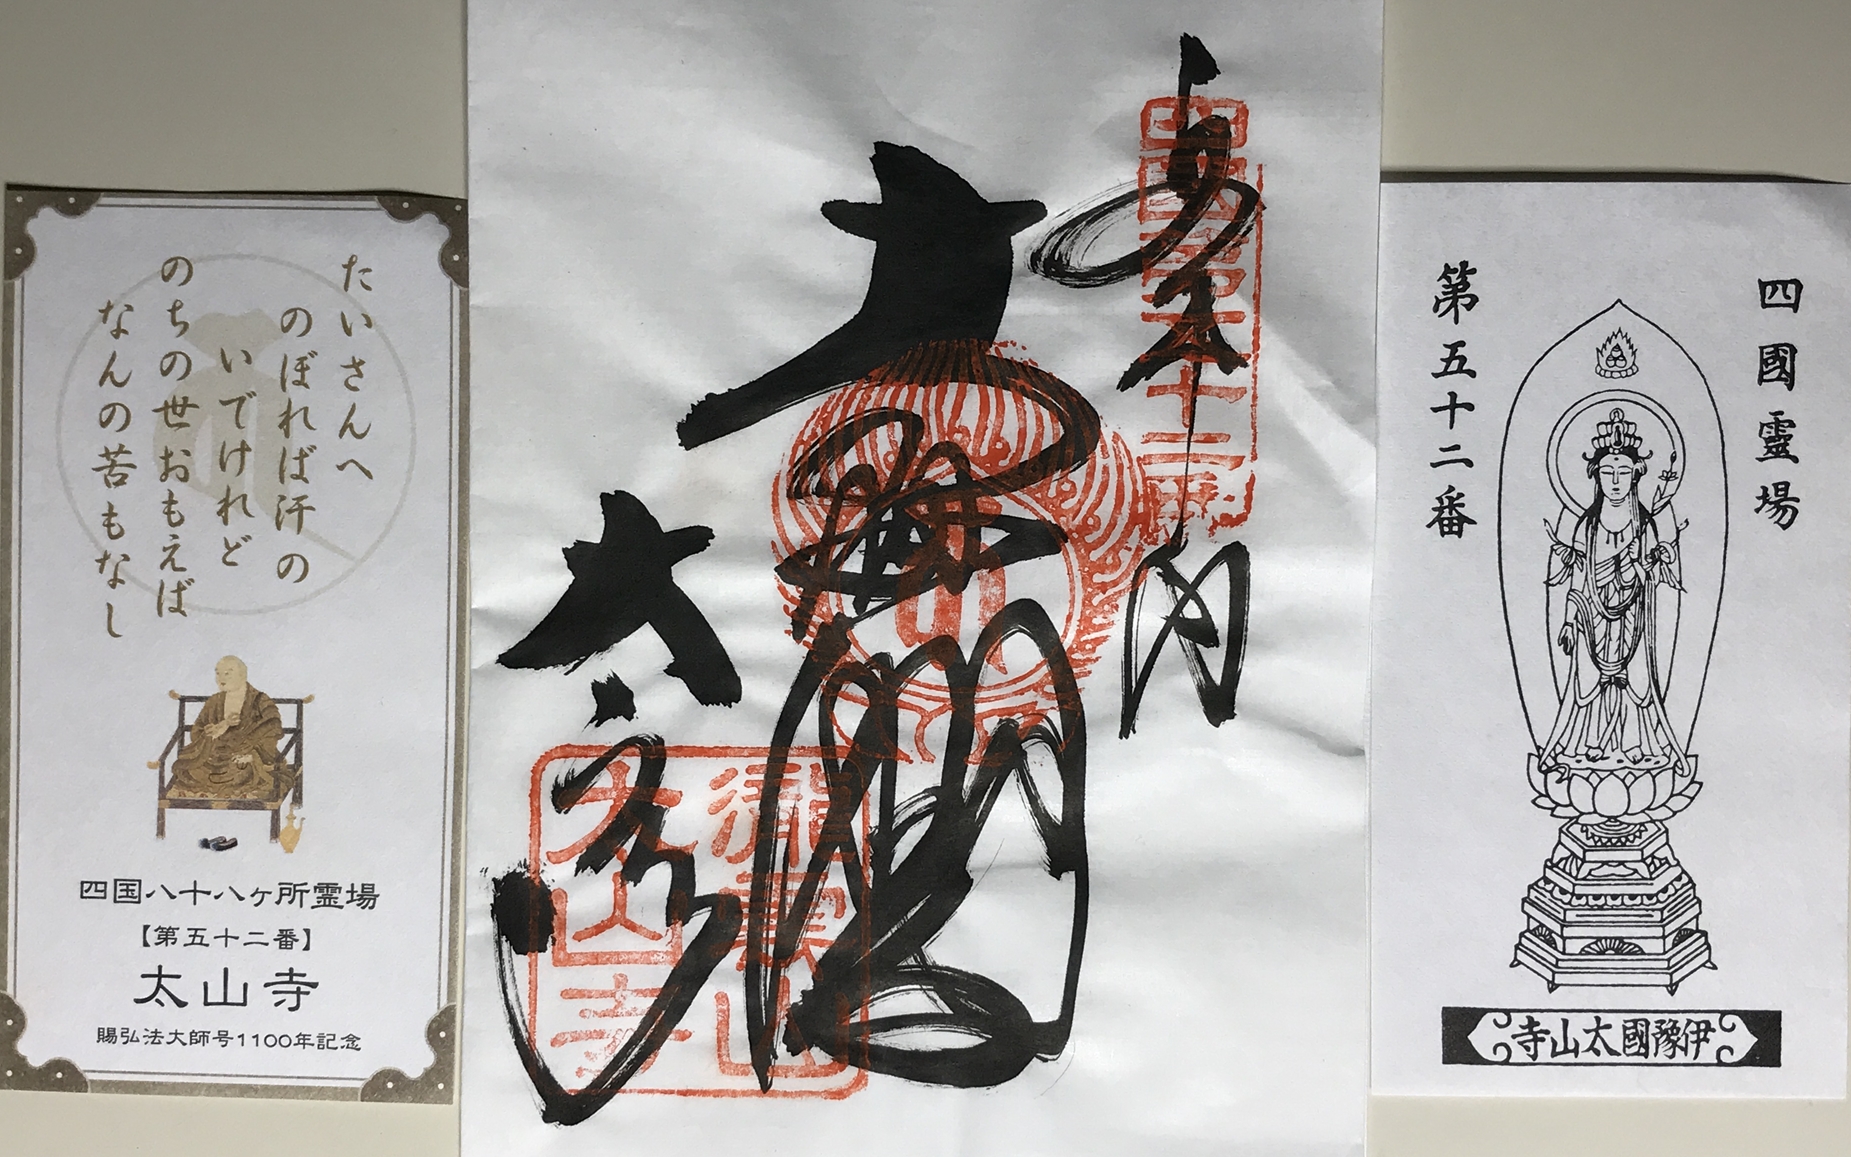 たいさんへ
のぼれば汗の
いでけれど
のちの世おもえば
なんの苦もなし
四国八十八ヶ所霊場
【第五十二番】
太山寺
賜弘法大師号1100年記念
奉
四国第五十二番
太山寺
瀧雲山
太山寺
四國靈場
第五十二番
伊豫國太山寺